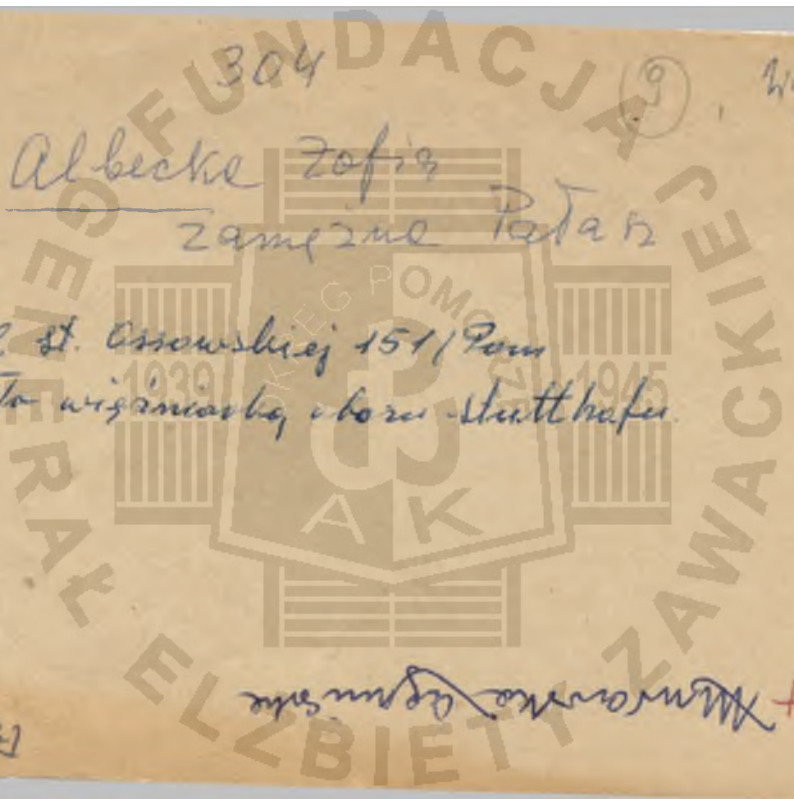 304
9
Albecka Zofia
zamężna Pałasz
st. Ossowskiej 151/Pom
więźniarką obozu Stutthofu.
FUNDACJA GENERAŁ ELŻBIETY ZAWACKIEJ
OKRĘG POMORZE
1939 1945
AK